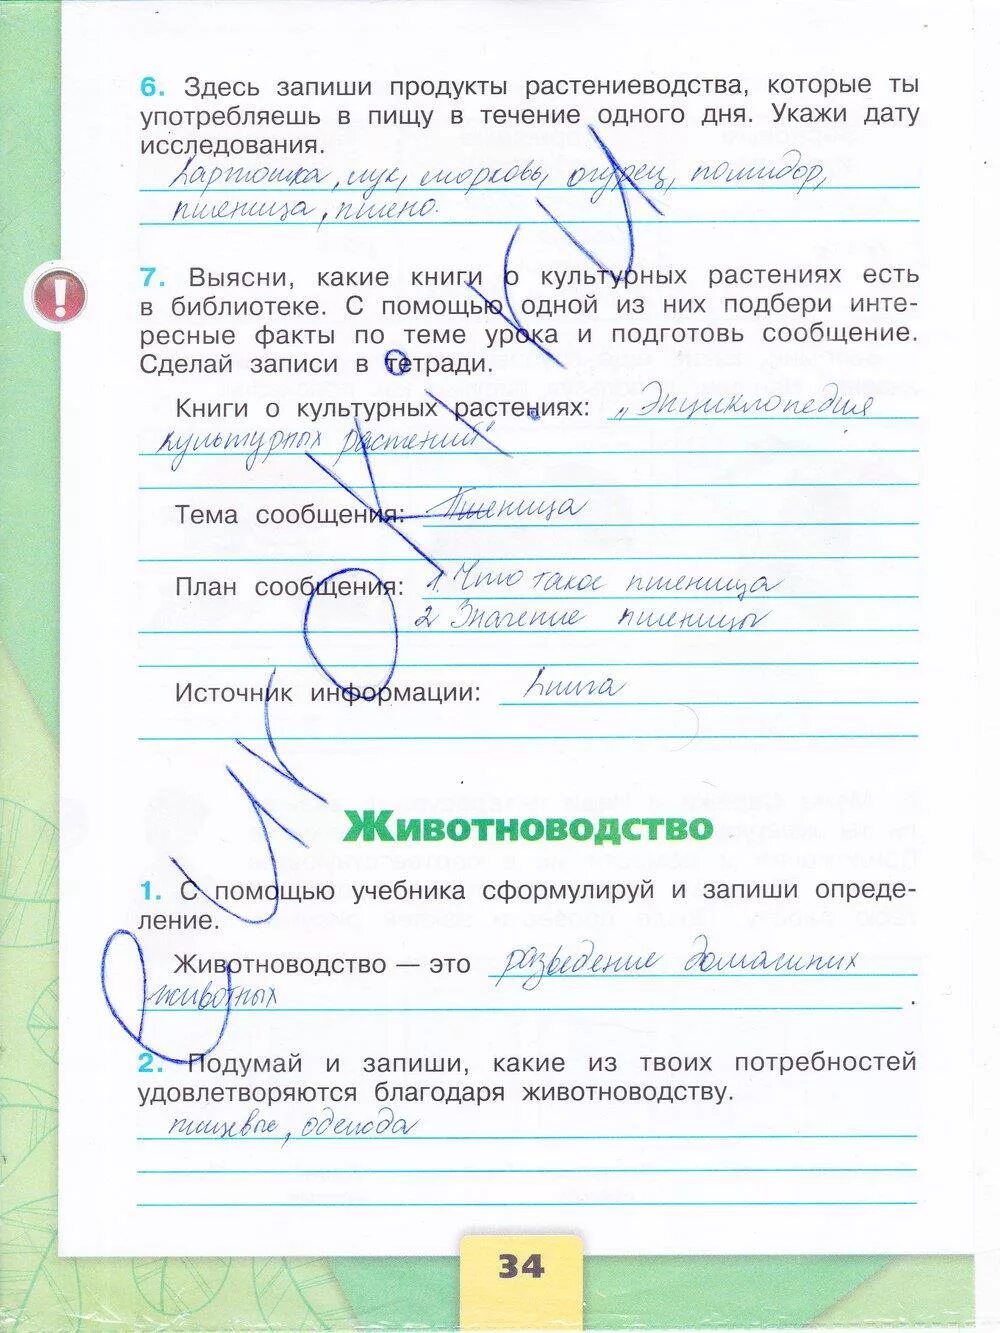 6. Здесь запиши продукты растениеводства, которые ты
употребляешь в пищу в течение одного дня. Укажи дату
исследования.
Картошка, лук, морковь, огурец, помидор,
пшеница, пшено.
7. Выясни, какие книги о культурных растениях есть
в библиотеке. С помощью одной из них подбери инте-
ресные факты по теме урока и подготовь сообщение.
Сделай записи в тетради.
Книги о культурных растениях: „Энциклопедия
культурных растений"
Тема сообщения: Пшеница
План сообщения: 1. Что такое пшеница
2 Значение пшеницы
Источник информации: Книга
Животноводство
1. С помощью учебника сформулируй и запиши опреде-
ление.
Животноводство — это разведение домашних
животных.
2. Подумай и запиши, какие из твоих потребностей
удовлетворяются благодаря животноводству.
пищевые, одежда
34